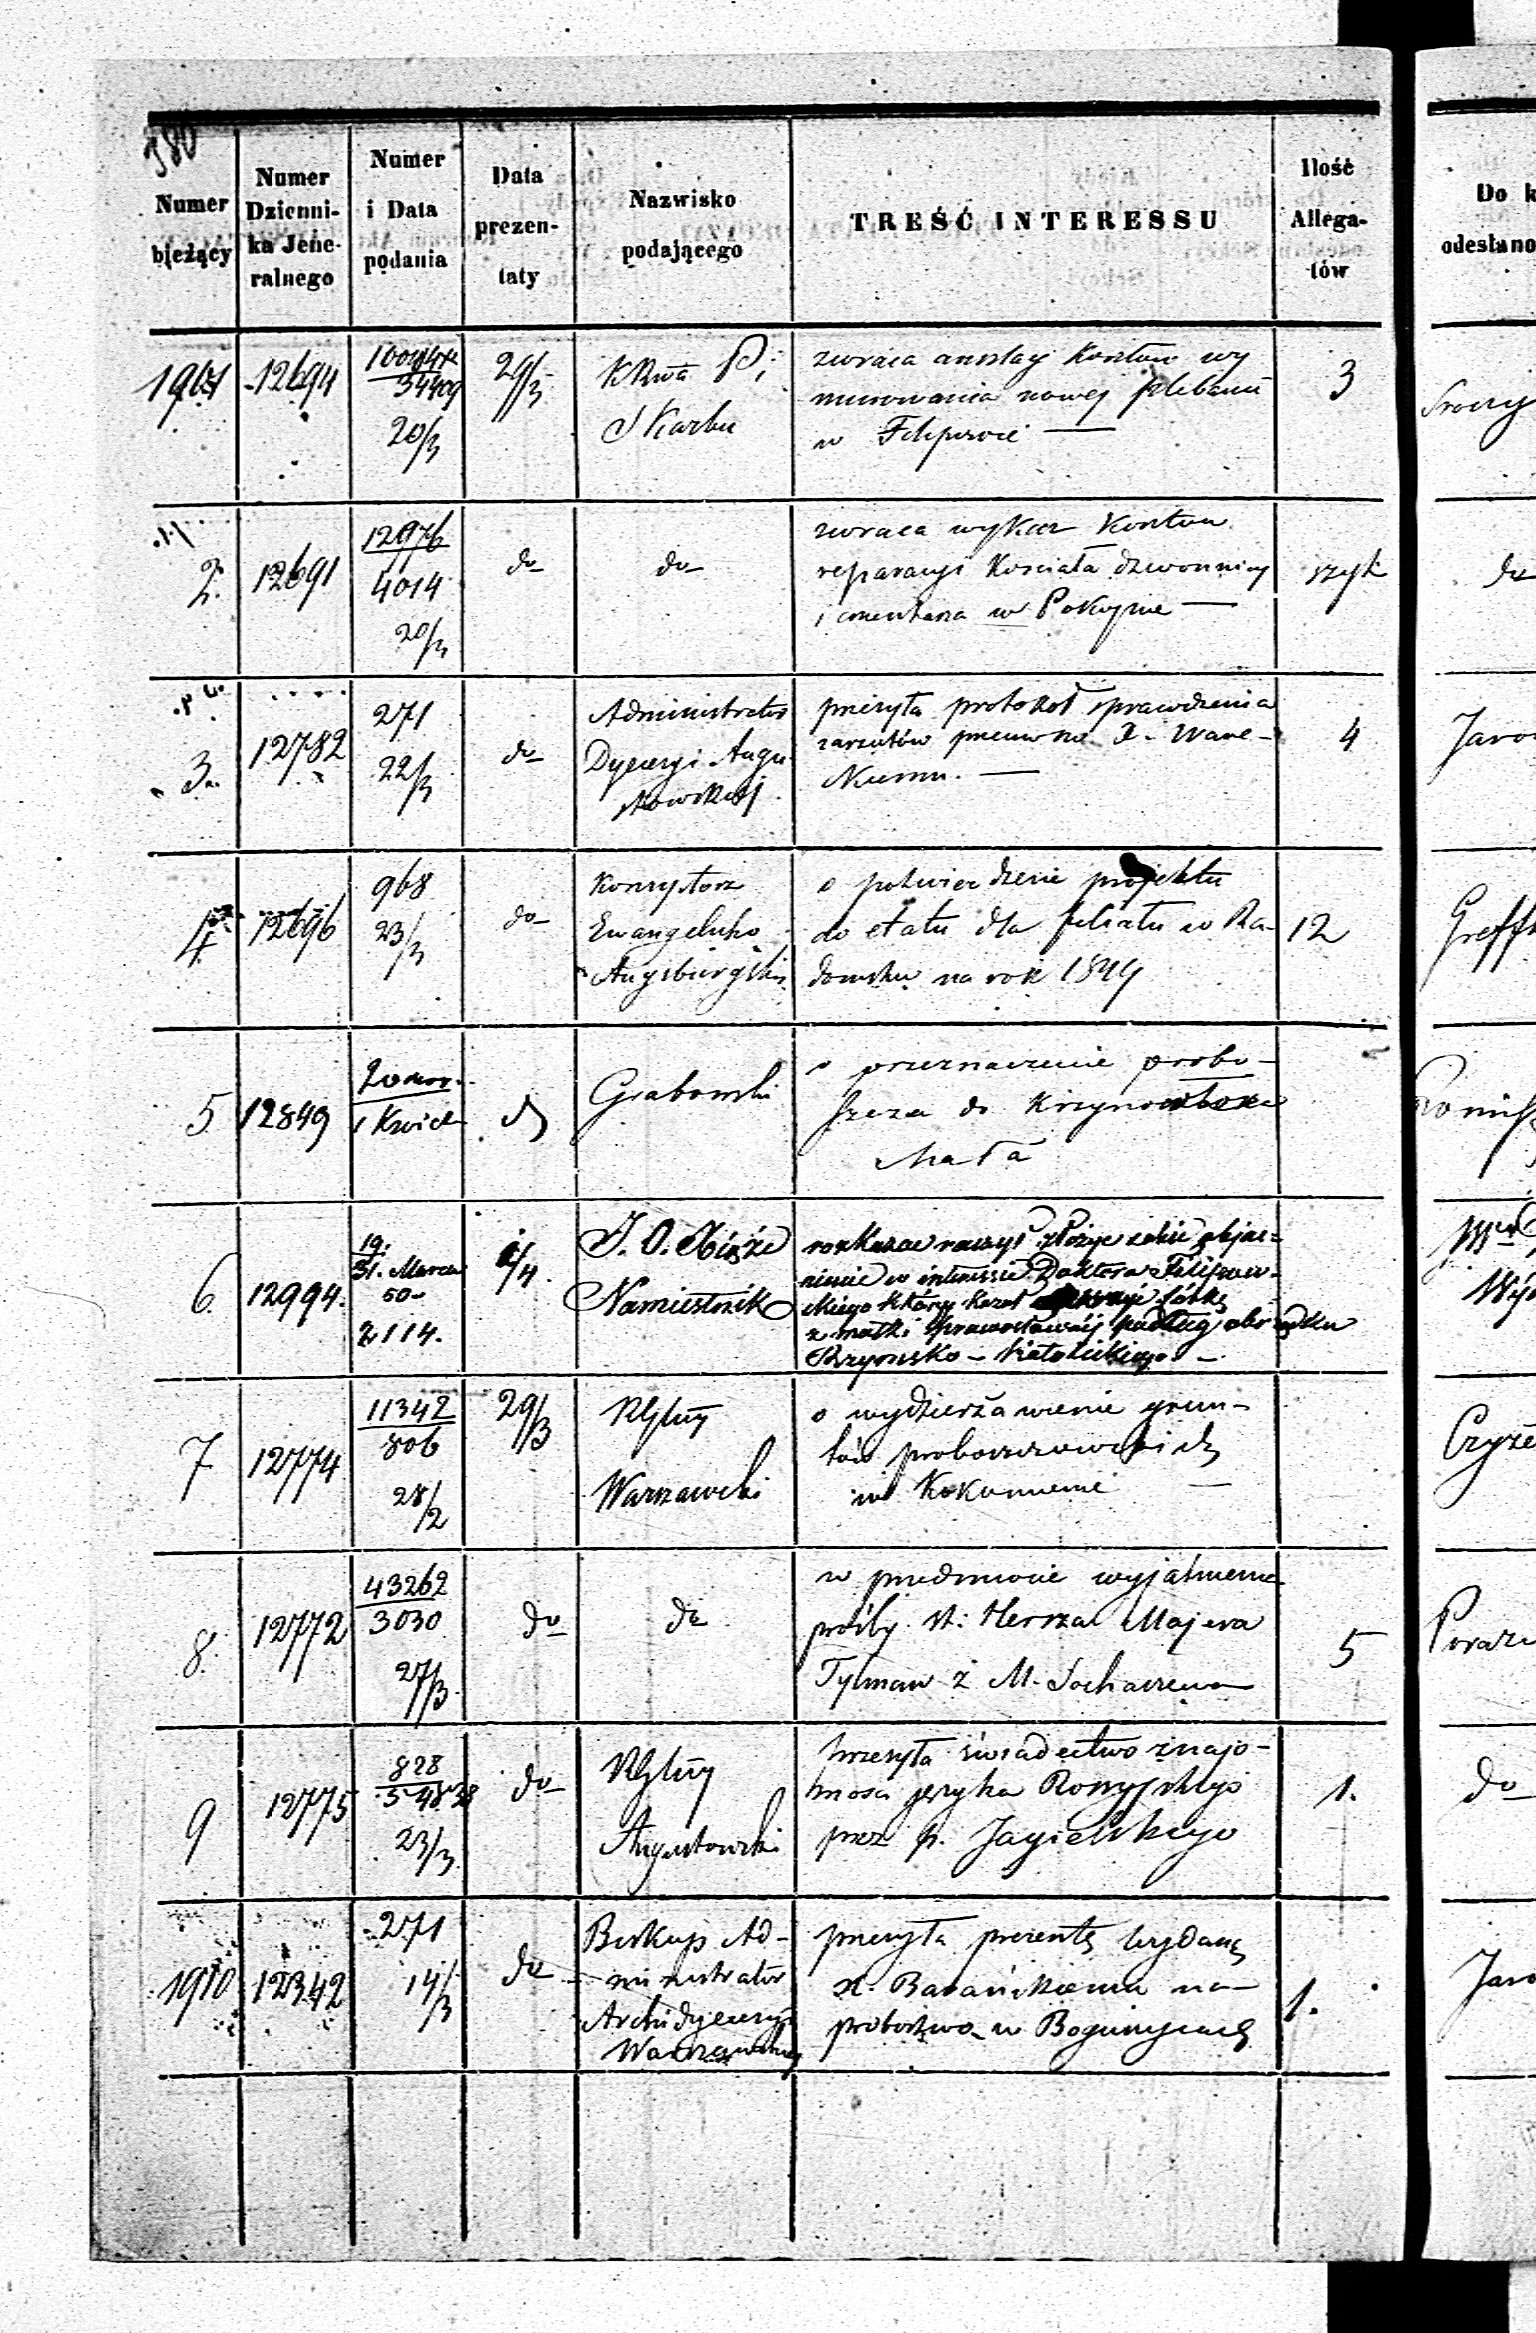 380
Numer bieżący
Numer Dzienni- ka Jene- ralnego
Numer i Data podania
Data prezen- taty
Nazwisko podającego
TREŚĆ INTERESSU
Ilość Allega- tów
Do k
odesłano
12694
20/3
29/3
KRwa P. i
Skarbu
zwraca anszlag kosztów wy
murowania nowej plebanii
w Filipowie —
3
2.
12691
12976
4014
20/3
do
do
zwraca wykaz kosztów
reparacyi Kościoła dzwonnicy
i cmentarza w —
szyk
do
3.
12782
271
22/3
do
Administrator
Dyecezyi Augu
stowskiej
przesyła protokół sprawdzenia
zarzutów przeciwko X. Wane-
—
4
4.
12696
968
23/3
do
Konsystorz
Ewangelicko
Augsburgski
o potwierdzenie projektu
do etatu dla filiału w Ra-
domsku na rok 1849
12
5
12849
1 Kwiet
Grabowski
o przeznaczenie probo-
szcza do Krzynowłoga
Mała
6
12994.
19.
31. Marca
50-
2114.
/4.
J. O. Xiąże
Namiestnik
rozkazać raczył złożyć sobie objaś-
nienie w interessie Doktora Filipow-
skiego który kazał córkę
z matki prawosławnéj podług obrządku
Rzymsko - Katolickiego. —
7
12774
11342
806
28/2
29/3
RGlny
Warszawski
o wydzierżawienie grun-
tów proboszczowskich
w —
8.
12772
43262
3030
27/3
do
do
w przedmiocie wyjaśnienia
prośby st: Herszka Majera
Tylman z M. Sochaczewa
5
9
12775
828
23/3
do
RGlny
Augustowski
przesyła świadectwo znajo-
mości języka Rossyjskiego
przez p. Jagielskiego
1.
do
1910
12342
271
14/3
do
Biskup Ad-
ministrator
Archidyecezyi
Warszawskiej
przesyła prezentę wydaną
X. Barańskiemu na
probostwo w
1.